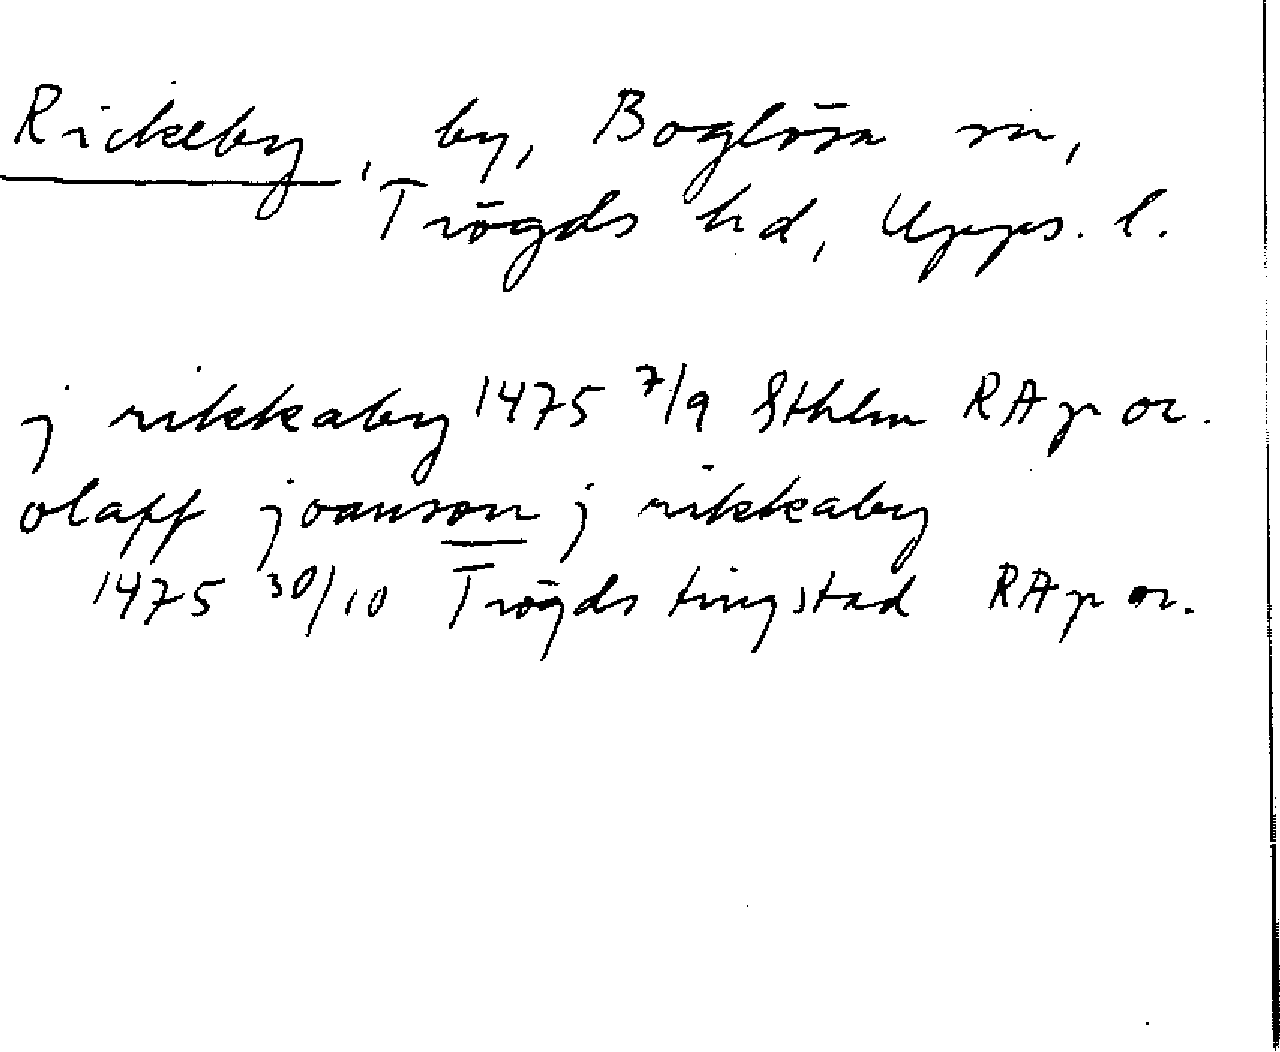 Rickeby, by, Boglösa sn,
Trögds hd, Upps. l.
j rikkaby 1475 7/9 Sthlm RAp or.
olaff joanson j rikkaby
1475 30/10 Trögds tingstad RAp or.